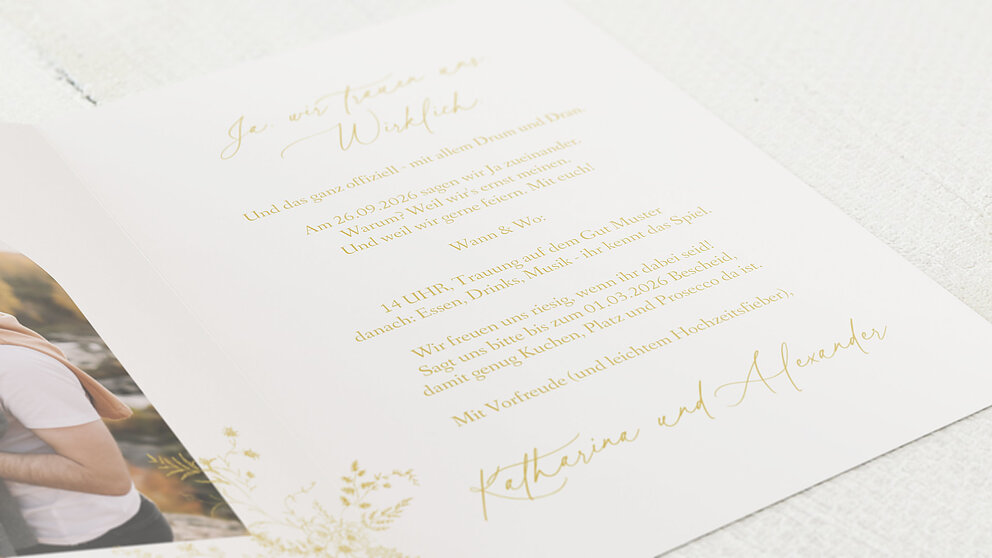 Ja, wir trauen uns
Wirklich
Und das ganz offiziell - mit allem Drum und Dran.
Am 26.09.2026 sagen wir Ja zueinander.
Warum? Weil wir's ernst meinen.
Und weil wir gerne feiern. Mit euch!
Wann & Wo:
14 UHR, Trauung auf dem Gut Muster
danach: Essen, Drinks, Musik - ihr kennt das Spiel.
Wir freuen uns riesig, wenn ihr dabei seid!
Sagt uns bitte bis zum 01.03.2026 Bescheid,
damit genug Kuchen, Platz und Prosecco da ist.
Mit Vorfreude (und leichtem Hochzeitsfieber),
Katharina und Alexander